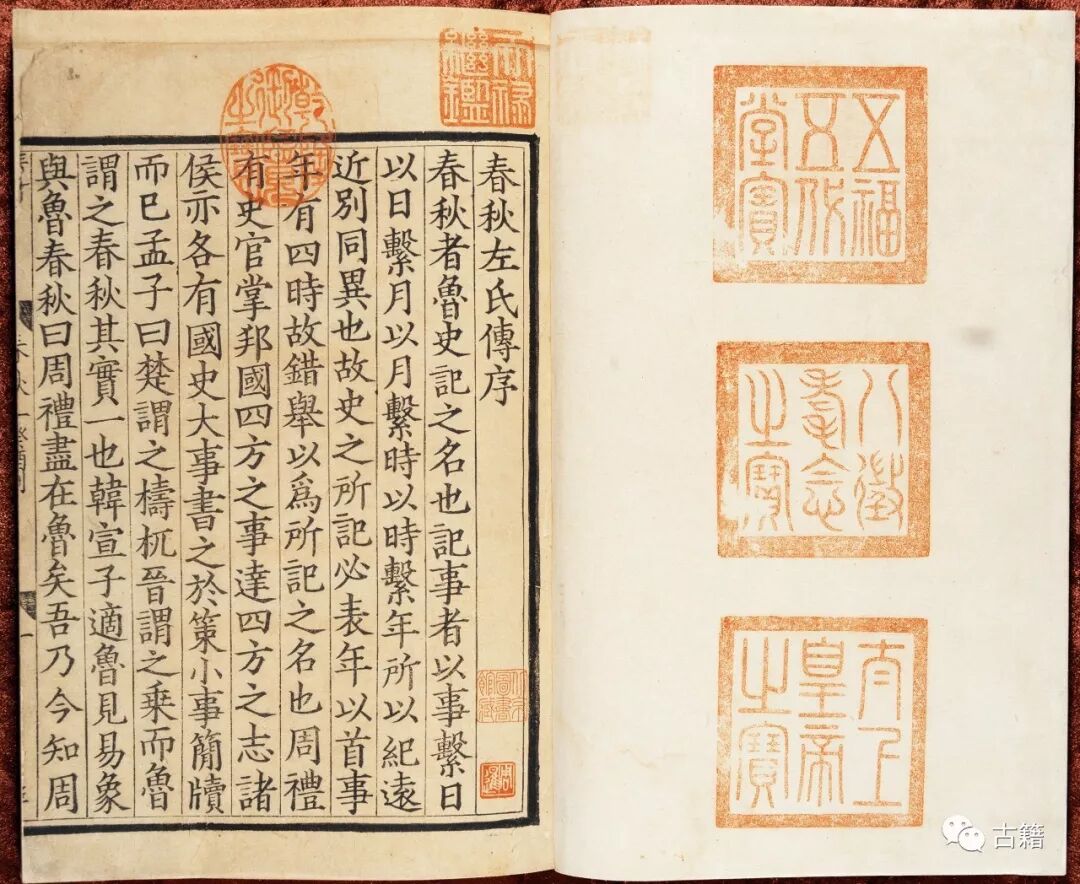 五福
五代
堂寶
八徵
耄念
之寶
太上
皇帝
之寶
天祿
繼鑑
乾隆御覽之寶
春秋左氏傳序
春秋者魯史記之名也記事者以事繫日
以日繫月以月繫時以時繫年所以紀遠
近別同異也故史之所記必表年以首事
年有四時故錯舉以爲所記之名也周禮
有史官掌邦國四方之事達四方之志諸
侯亦各有國史大事書之於策小事簡牘
而已孟子曰楚謂之檮杌晉謂之乗而魯
謂之春秋其實一也韓宣子適魯見易象
與魯春秋曰周禮盡在魯矣吾乃今知周
北京圖書館藏
周暹
古籍